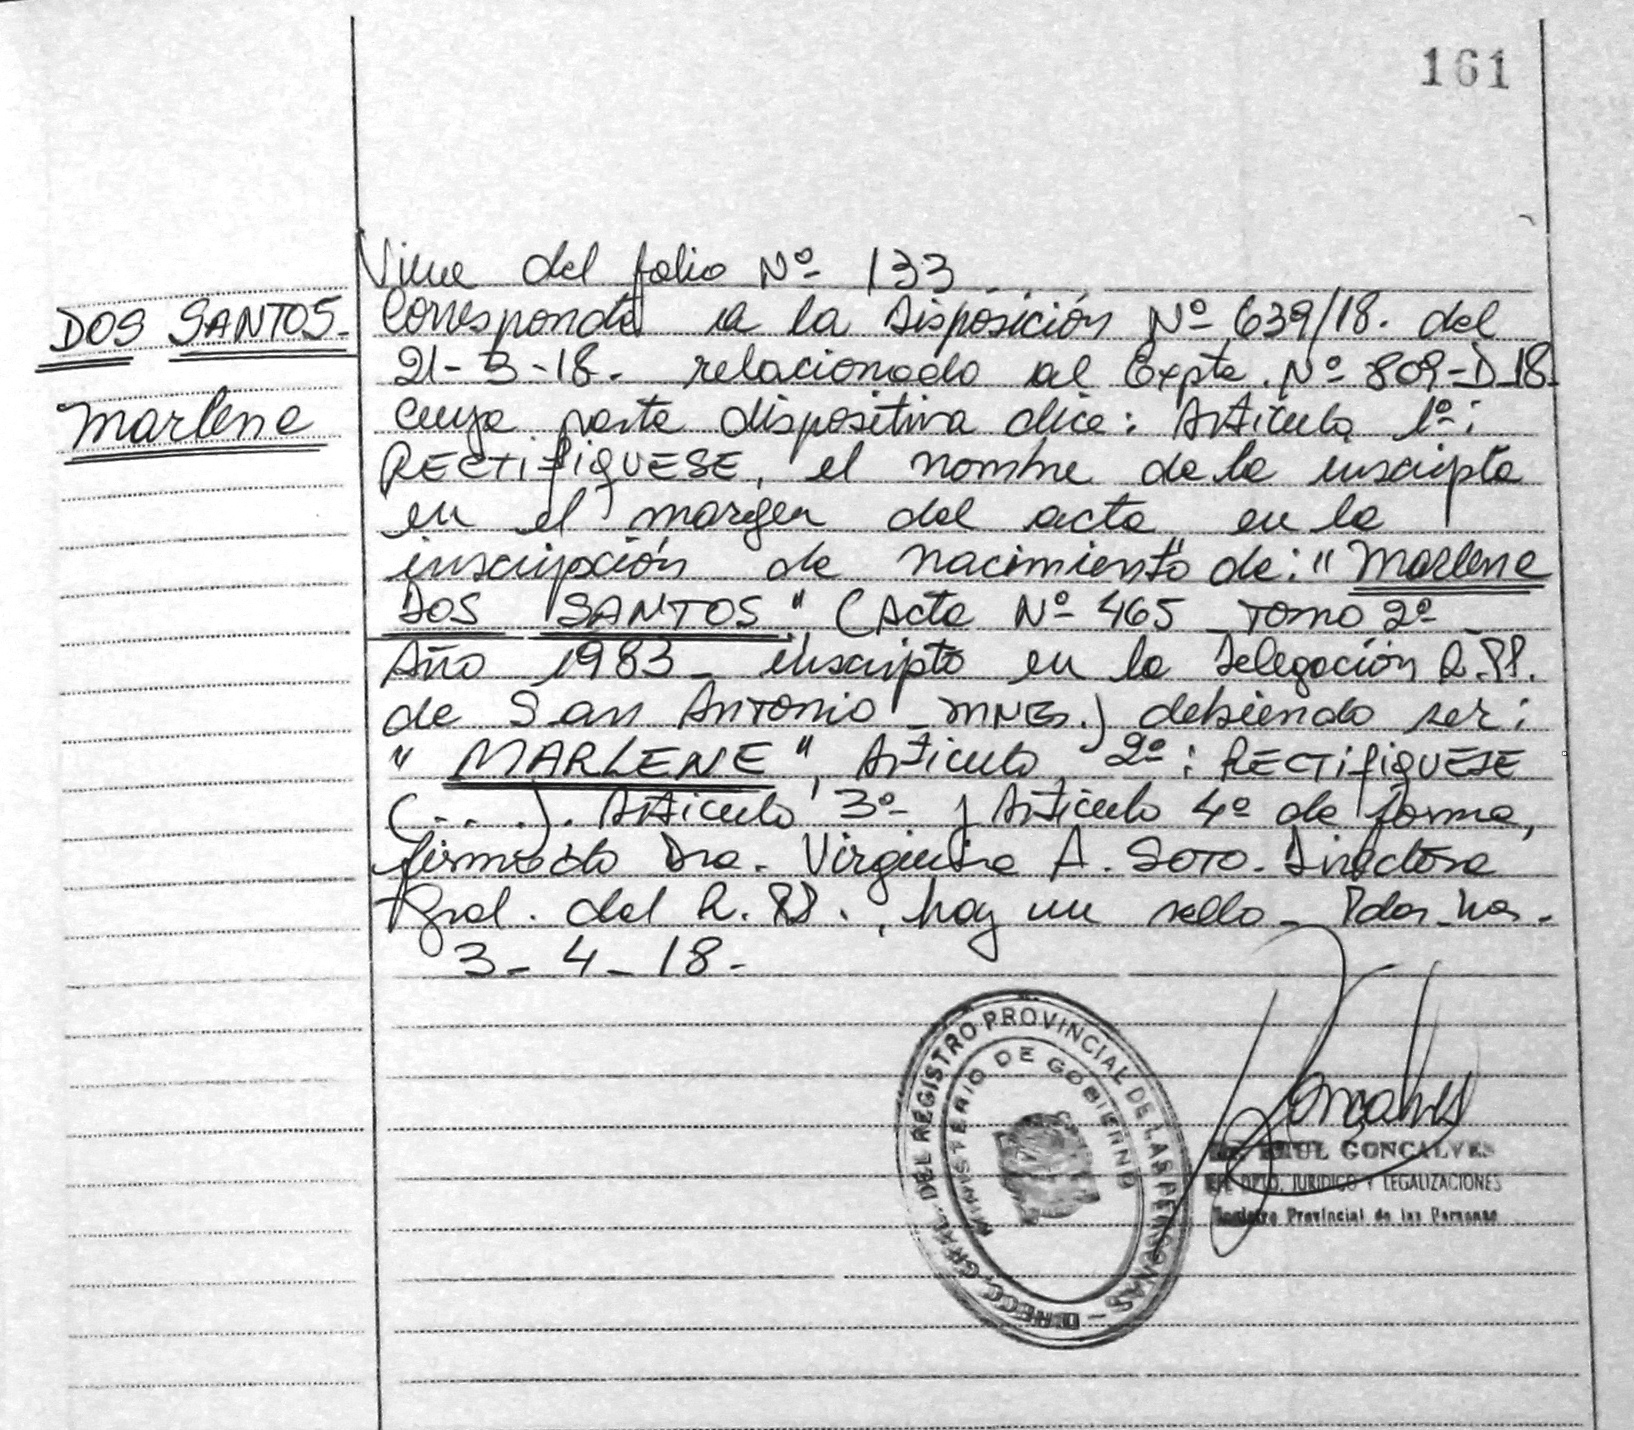 161
DOS SANTOS.
Marlene
Viene del folio Nº 133
Corresponde a la Disposición Nº 639/18. del
21-3-18. relacionado al Expte. Nº 809-D-18
cuya parte dispositiva dice: Artículo 1º:
RECTIFIQUESE, el nombre de la inscripta
en el margen del acta en la
inscripción de nacimiento de: "Marlene
DOS SANTOS" (Acta Nº 465 Tomo 2º
Año 1983 - inscripto en la Delegación R.PP.
de San Antonio - MNES.) debiendo ser:
"MARLENE", Artículo 2º: RECTIFIQUESE
(...). Artículo 3º y Artículo 4º de forma,
firmado Dra. Virginia A. SOTO. Directora
Gral. del R.PP., hay un sello - Pdas. Mnes.
3-4-18-
DIRECC. GRAL. DEL REGISTRO PROVINCIAL DE LAS PERSONAS -
MINISTERIO DE GOBIERNO
Goncalves
RAUL GONCALVES
JEFE DPTO. JURIDICO Y LEGALIZACIONES
Registro Provincial de las Personas